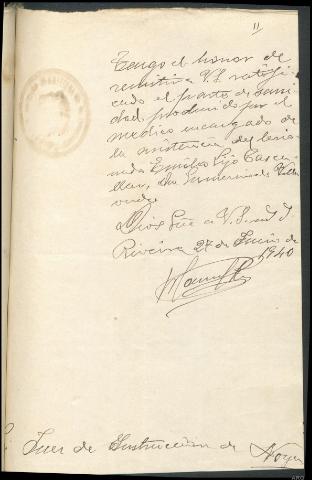 11
Tengo el honor de
remitir a V.S. ratifi
cado el parte de sani
dad producido por el
médico encargado de
la asistencia del lesio
nado Emilio Lijo Casce
llar, Don
Dios gūe a V.S. m
Riveira 27 de Junio de
1940
Juez de Instrucción de Noya